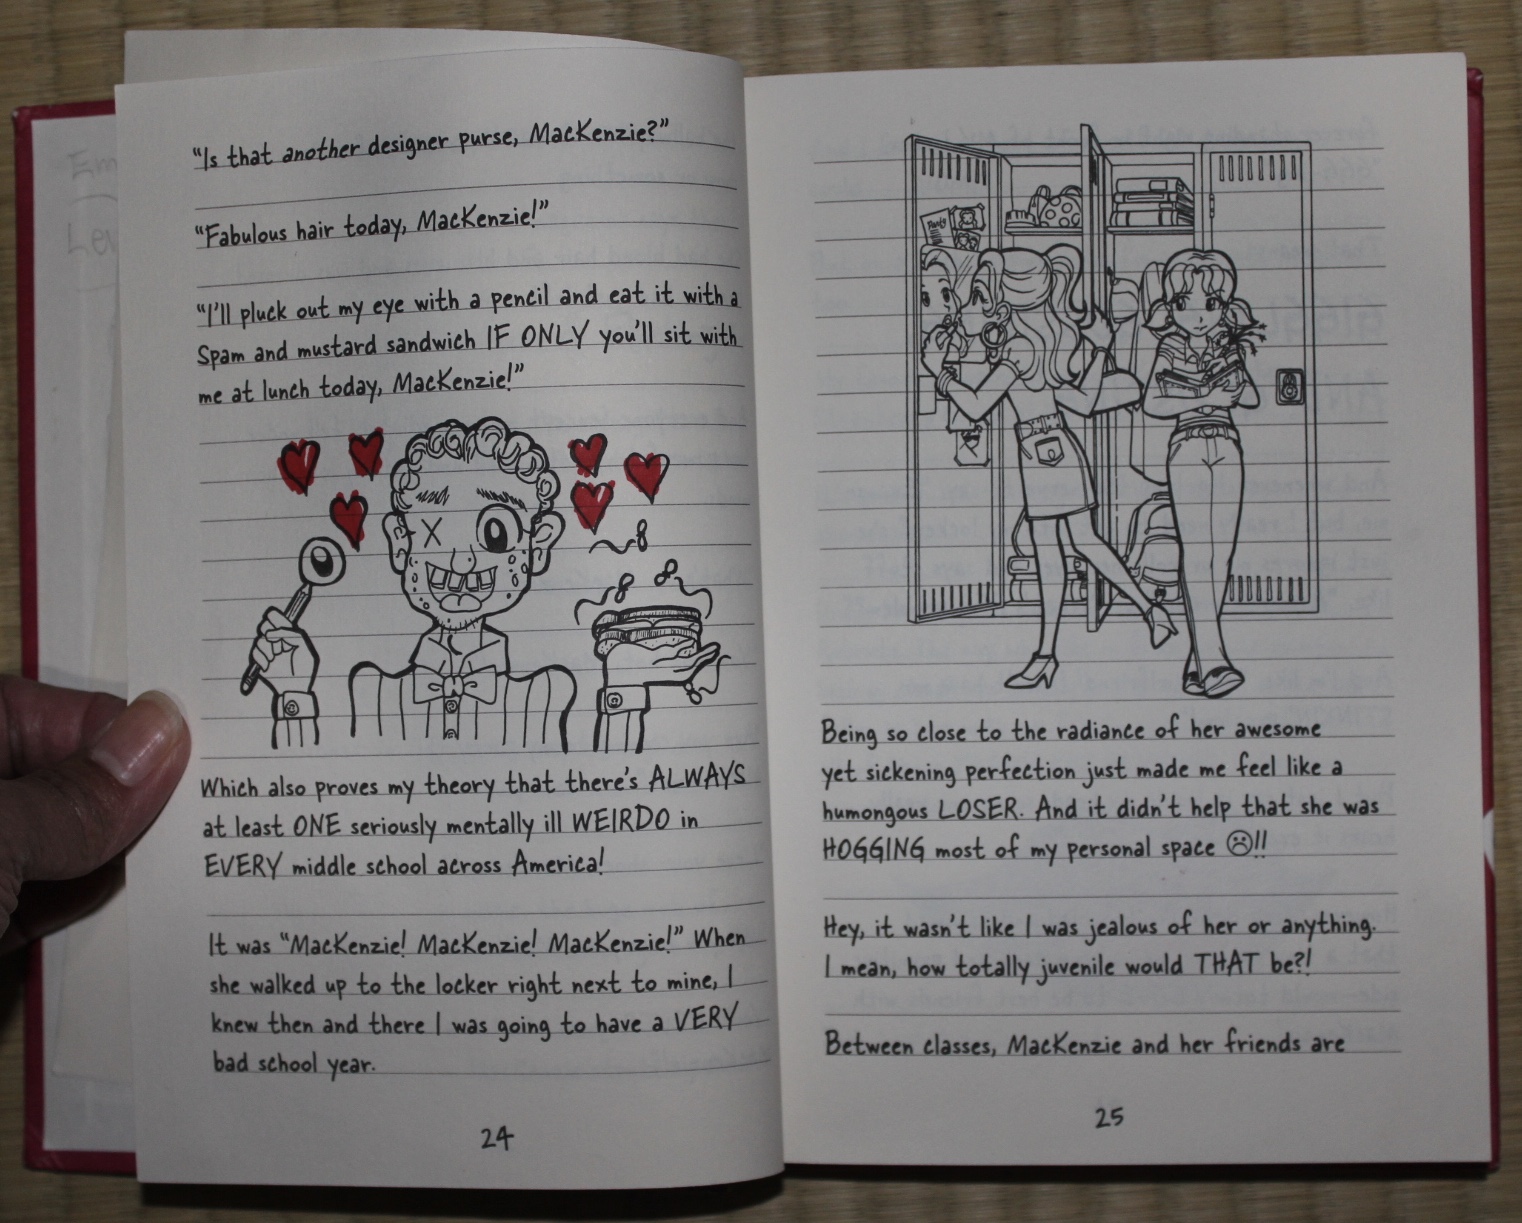 "Is that another designer purse, MacKenzie?"
"Fabulous hair today, MacKenzie!"
"I'll pluck out my eye with a pencil and eat it with a
Spam and mustard sandwich IF ONLY you'll sit with
me at lunch today, MacKenzie!"
Which also proves my theory that there's ALWAYS
at least ONE seriously mentally ill WEIRDO in
EVERY middle school across America!
It was "MacKenzie! MacKenzie! MacKenzie!" When
she walked up to the locker right next to mine, I
knew then and there I was going to have a VERY
bad school year.
24
Party
Being so close to the radiance of her awesome
yet sickening perfection just made me feel like a
humongous LOSER. And it didn't help that she was
HOGGING most of my personal space ☹!!
Hey, it wasn't like I was jealous of her or anything.
I mean, how totally juvenile would THAT be?!
Between classes, MacKenzie and her friends are
25